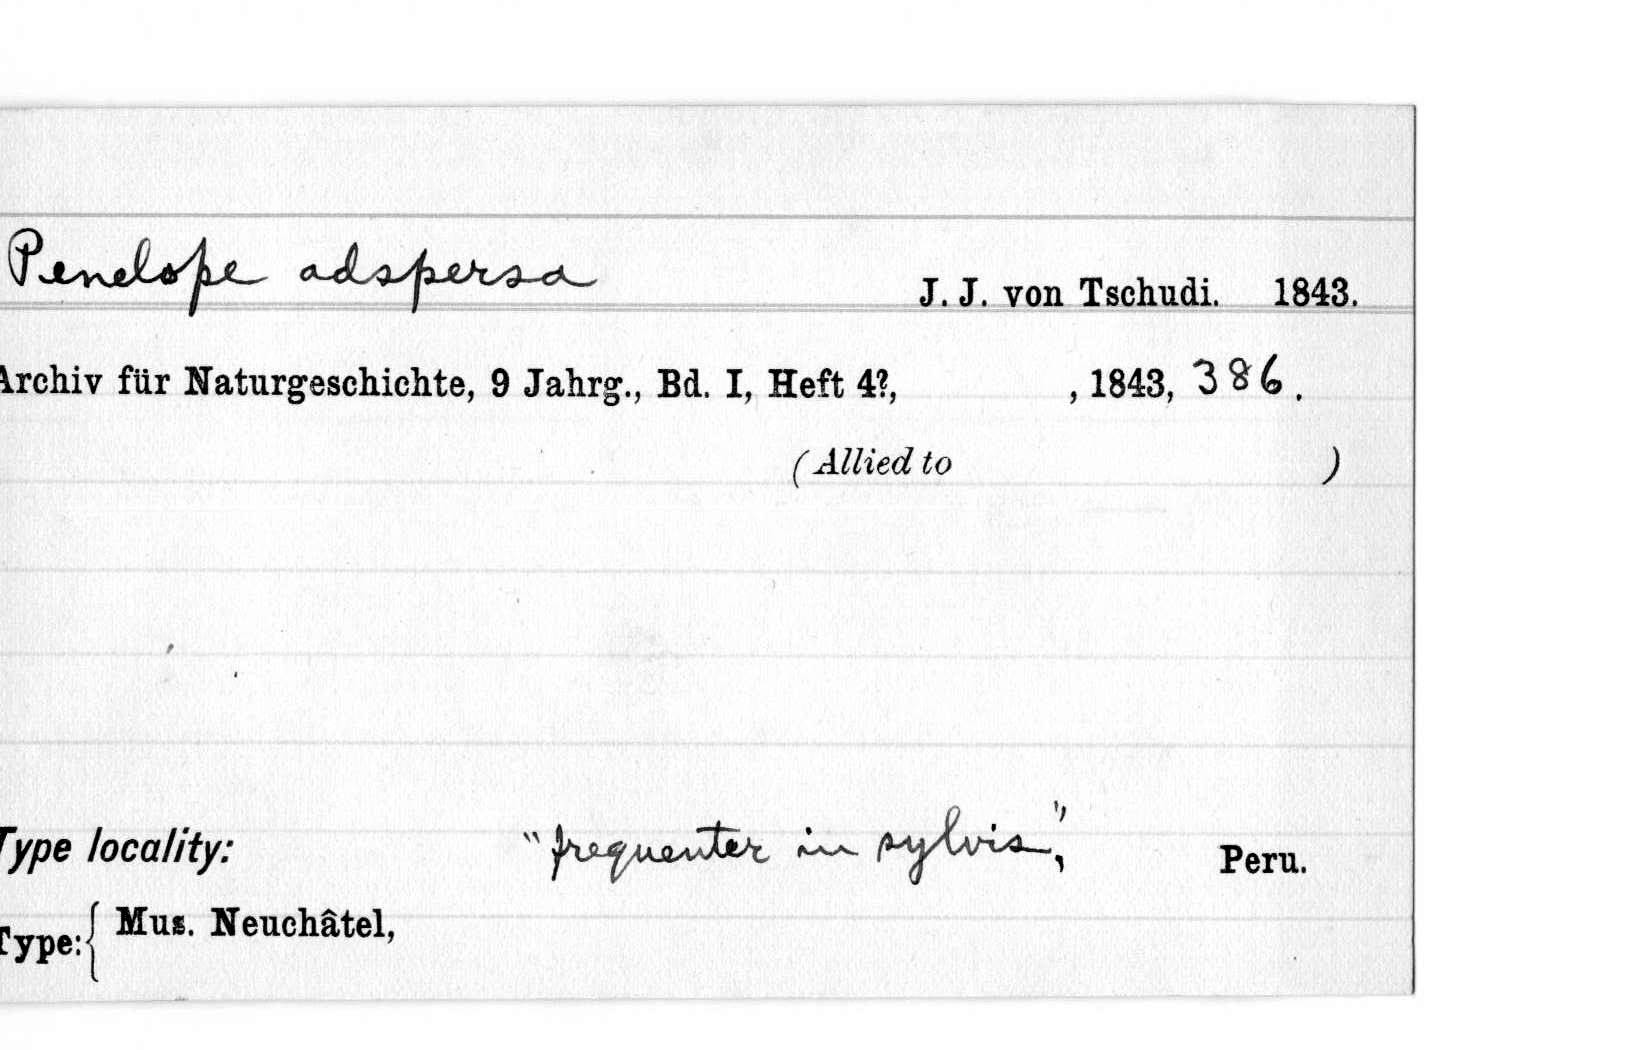 Penelope adspersa
J. J. von Tschudi. 1843.
Archiv für Naturgeschichte, 9 Jahrg., Bd. I, Heft 4?, , 1843, 386.
(Allied to )
Type locality: "frequenter in sylvis", Peru.
Type: { Mus. Neuchâtel,